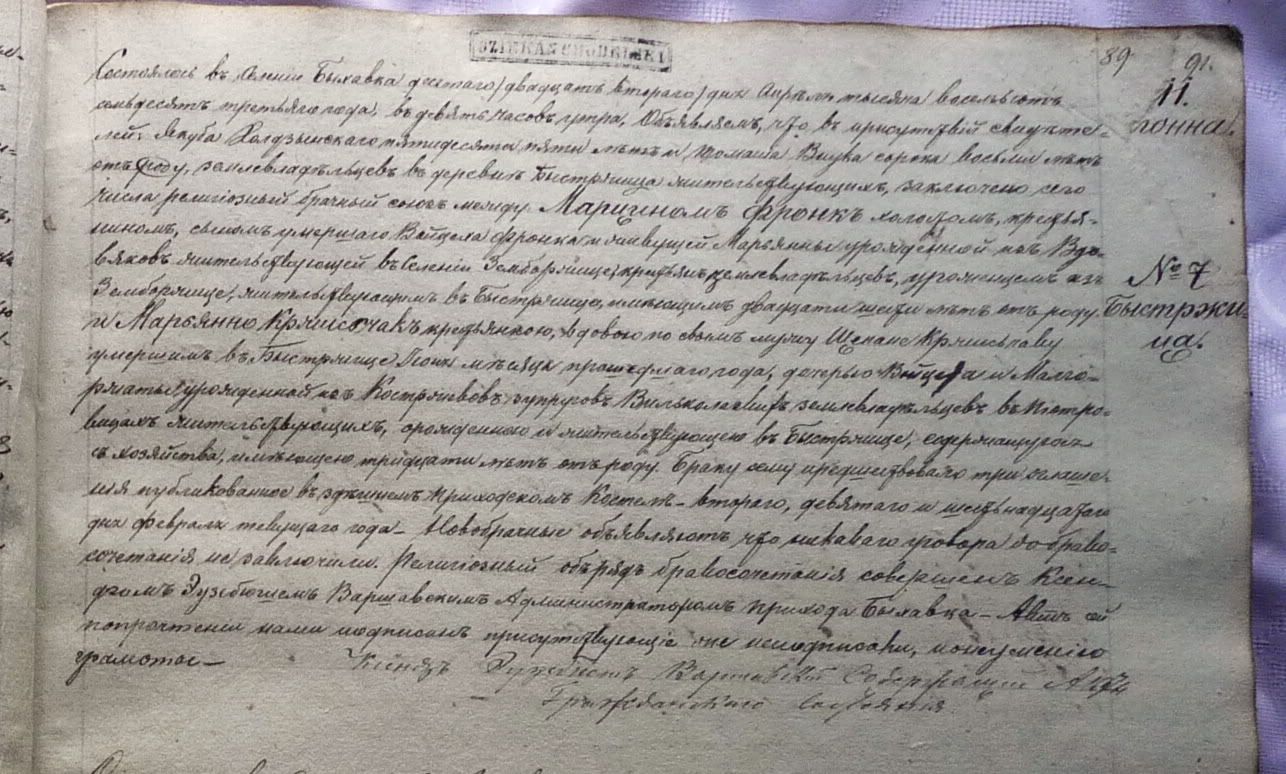 DZIEKAN CHODELSKI
89 91.
11.
Состоялось въ Селеніи Быхавка десятаго /двадцать втораго/ дня Апрѣля тысяча восемьсотъ
семьдесятъ третьяго года, въ девять часовъ утра. Объявляемъ, что въ присутствіи свидѣте-
лей Якуба пятидесяти пяти лѣтъ и Томаша Внука сорока восьми лѣтъ
отъ роду, землевладѣльцевъ въ деревнѣ Быстржица жительствующихъ, заключенъ сего
числа религіозный брачный союзъ между Марциномъ Фронкъ холостомъ, кресть-
яниномъ, сыномъ умершаго Войцеха Фронка и живущей Марьянны урожденной изъ Вдо-
вяковъ жительствующей въ Селеніи Земборжице, крестьянъ землевладѣльцевъ, урожденцемъ изъ
Земборжице, жительствующимъ въ Быстржице, имѣющимъ двадцати шести лѣтъ отъ роду
и Марьянною крестьянкою, вдовою по своемъ мужу Щепане
умершимъ въ Быстржице мѣсяца прошедшаго года, дочерью Войцеха и Малго-
ржаты урожденной изъ супруговъ землевладѣльцевъ въ Пiотро-
вицахъ жительствующихъ, урожденною и жительствующею въ Быстржице, содержащуюся
съ хозяйства, имѣющею тридцати лѣтъ отъ роду. Браку сему предшествовало три оглаше-
нія публикованное въ здѣшнемъ приходскомъ Костелѣ – втораго, девятаго и шестьнадцатаго
дня февраля текущаго года – Новобрачные объявляютъ что никаваго уговора до брако-
сочетанія не заключили. Религіозный обрядъ бракосочетанія совершенъ Ксен-
дзомъ Эузебіюшемъ Варшавскимъ Администраторомъ прихода Быхавка – Актъ сей
по прочтеніи нами подписанъ присутствующіе же неподписали, по неумѣнію
грамотѣ –
Ксендзъ Варшавскій Содержащій Акты
Гражданскаго Состоянія
№ 7
Быстржи-
ца.